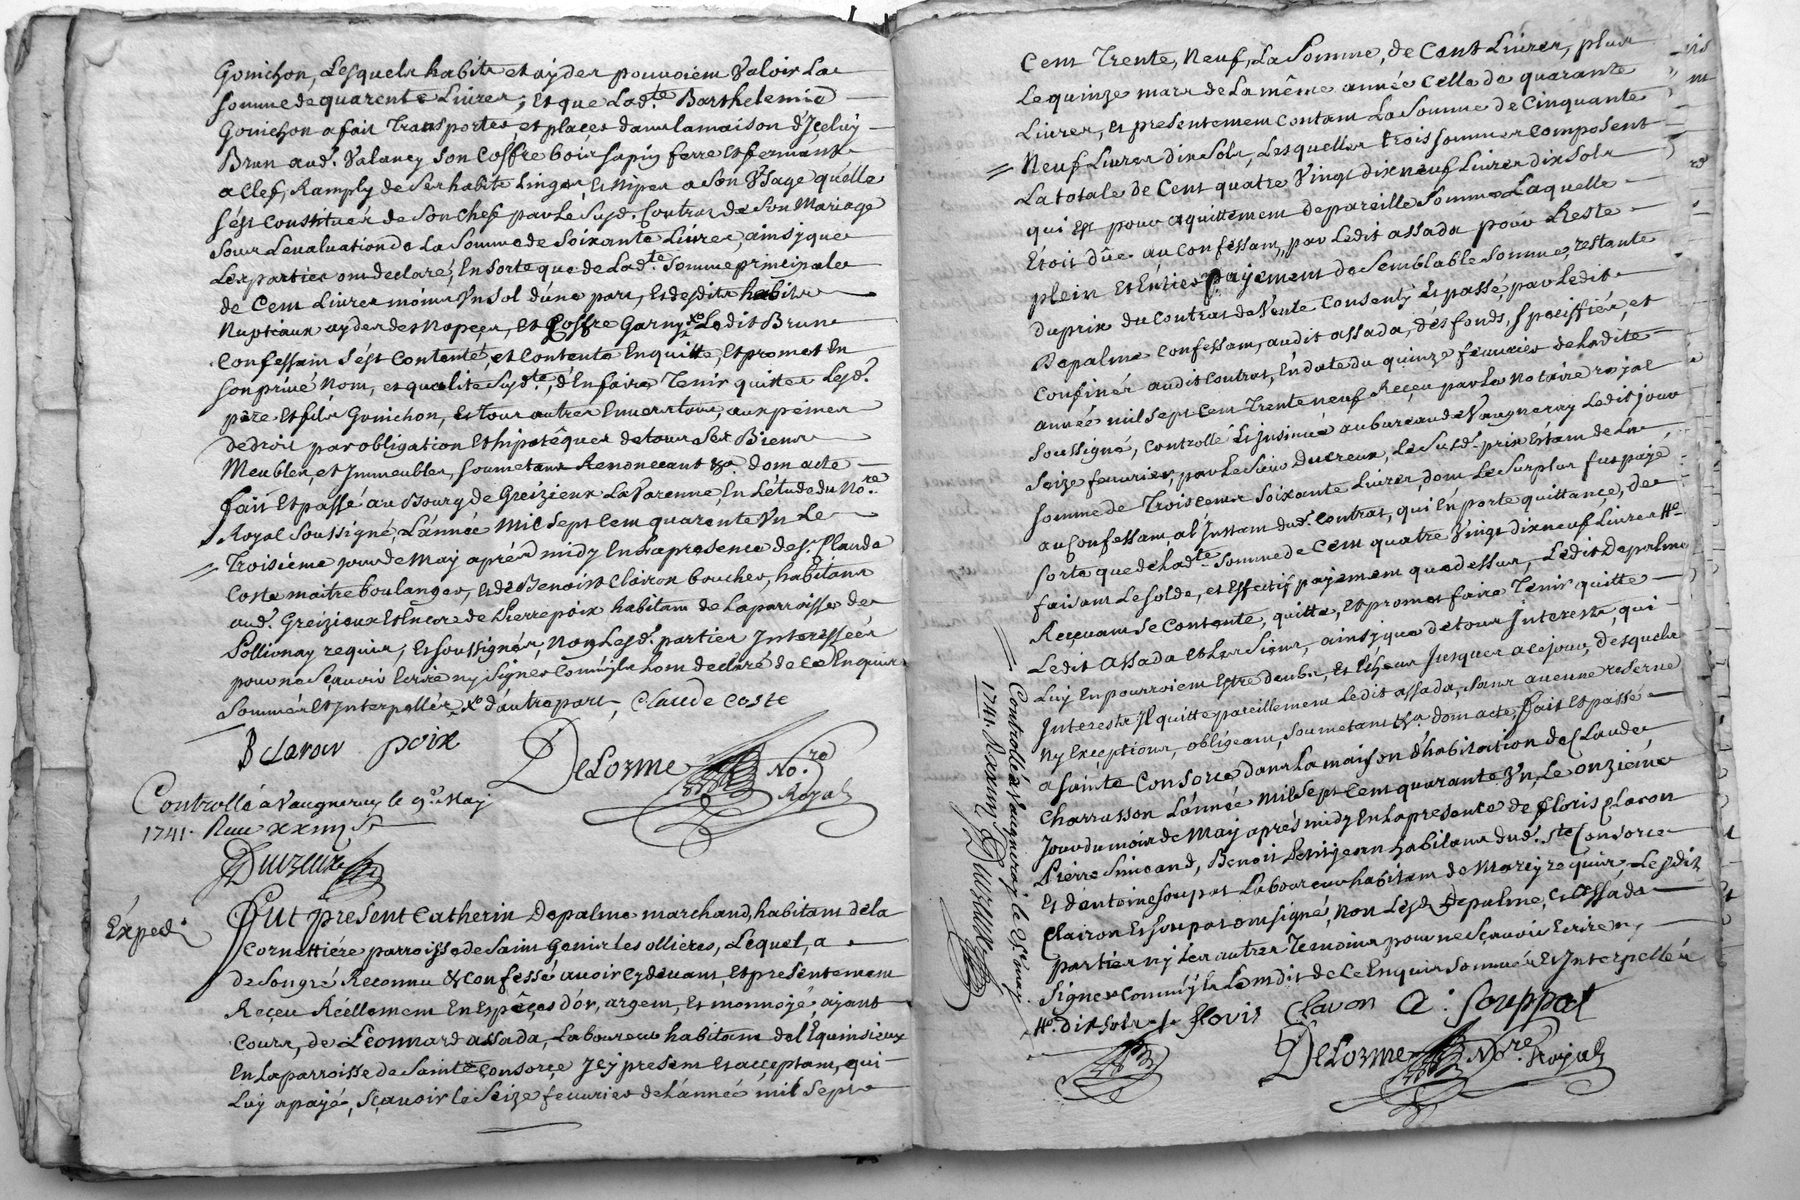 Gonichon, Lesquels habits et ayder pouvoient Valoir La
somme de quarente Livres; et que Lad.te Barthelemie
Gonichon a fait Transporter, et placer dans la maison d'Iceluy
Brun aud. Valancy son Coffre bois sapin ferré et fermant
a Clef, Ramply de ses habits Linges et nipes a son Usage qu'elle
s'ést Constituér de Son Chef par Le Susd. Contrat de Son Mariage
sous L'evaluation de La Somme de Soixante Livres, ainsy que
Les parties ont declaré, En sorte que de Lad.te Somme principale
de Cent Livres moins Un Sol d'une part, Et desdits habits
Nupteaux ayder des Nopces, et Coffre Garny, Ledit Brun
Confessant s'ést Contenté, et Contente En quitte, Et promet En
son privé Nom, et qualité Susd.te, d'En faire Tenir quittes Lesd.
pére Et fils Gonichon, Et Tous autres Envers tous, aux peines
de droit par obligation Et hipotêques de tous Ses Biens
Meubles, et Immeubles, soumetant Renoncant &a. dont acte
fait Et passé au Bourg de Greizieux La Varenne En L'étude du No.re
Royal Soussigné, L'année Mil Sept Cent quarente Un Le
Troisième jour de May aprés midy En La presence de S.r Claude
Coste maitre boulanger, Et de Benoist Clairon boucher, habitans
aud. Greizieux Et Encore de Pierre poix habitant de La parroisse de
Pollionay requis, Et soussignés, Non Lesd. parties Interessées
pour ne Sçavoir Ecrire ny Signer Comm'ils L'ont déclaré de Ce Enquis
Sommés Et Interpellés, Xe d'autre part, Claude Coste
B Claron poix
DeLorme No.re
Royal
Controllé a Vaugneray le 9.e May
1741. Recu xxiiij s
Ducreux
Exped.
Fut present Catherin Depalme marchand, habitant de la
Cornettiére parroisse de Saint Genis les ollières, Lequel, a
de Son gré Reconnu & Confessé avoir Cydevant, Et presentement
Reçeu Réellement En Espéces d'or, argent, Et monnoyé, ayant
Cours, de Léonnard assada, Laboureur habitant de L'Equinsieux
En La parroisse de Sainte Consorçe Icy present Et acceptant, qui
Luy a payé, Sçavoir le Seize fevrier de L'année mil Sept
Cent Trente, Neuf, La Somme, de Cent Livres, plus
Le quinze mars de La même année Celle de quarante
Livres, Et presentement Contant La Somme de Cinquante
Neuf Livres dix Sols, Lesquelles trois sommes Composent
La totale de Cent quatre Vingt dixneuf Livres dix Sols
qui Est pour aquittement de pareille Somme Laquelle
Etoit dûe au Confessant, par Ledit assada pour Reste
plein Et Entier Payement de Semblable Somme, restante
du prix du Contrat de Vente Consenty Et passé par Ledit
Depalme Confessant, audit assada, dés fonds, spéciffiés, et
Confinés audit Contrat, En date du quinze fevrier de Ladite
année mil Sept Cent Trente neuf Reçeu par Le Notaire royal
soussigné, Controllé Et jnsinué au bureau de Vaugneray Ledit jour
Seize fevrier, par Le Sieur Ducreux, Le Susd. prix Etant de La
somme de Trois Cents Soixante Livres, dont Le Surplus fut payé
au Confessant, a L'Instant dud. Contrat, qui En porte quittance, de
sorte que de Lad.te Somme de Cent quatre Vingt dixneuf Livres #e
faisant Le Solde, et Effectif payement que dessus, Ledit Depalme
Reçevant Se Contente, quitte, Et promet faire Tenir quitte
Ledit assada Et Les Siens, ainsy que de tous Interests, qui
Luy En pourroient Estre deubs, Et Echeus Jusques a Ce jour, desquels
Interests Il quitte pareillement Ledit assada, Sans aucune reserve
ny Exçeptions, obligeant, Soumetant &a dont acte, fait Et passé
a Sainte Consorce dans La maison d'habitation de Claude
Charrasson L'année Mil Sept Cent quarante Un, Le onziéme
Jour du mois de May aprés midy En La presence de Floris Clavon
Pierre Simeand, Benoit Petitjean habitans dud. S.te Consorce
Et d'antoine Soupat Laboureur habitant de Marcy requis, Lesdits
Clairon Et Soupat ont signé, Non Lesd. Depalme, Et assada
parties ny Les autres Temoins pour ne Sçavoir Ecrire ny
Signer Comm'ils L'ont dit de Ce Enquis Sommés Et Interpellés
#e. dix sols floris Clavon A: Souppat
DeLorme No.re Royal
Controllé a Vaugneray le 25.e may
1741. R xxiiij s Ducreux